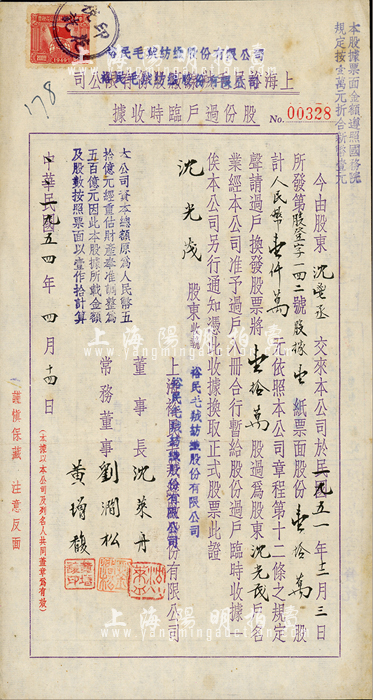 裕民毛絨紡織股份有限公司
上海
公司
股份過戶臨時收據
No. 00328
178
本股據票面金額遵照國務院
規定按壹萬元折合新幣壹元
今由股東
交來本公司於一九五一年十二月三日
所發第股臨字一四二號股據壹紙票面股份壹拾萬股
計人民幣壹仟萬元依照本公司章程第十二條之規定
聲請過戶換發股票將壹拾萬股過爲股東沈光
戶名
業經本公司准予過戶入冊合行暫給股份過戶臨時收據
俟本公司另行通知憑此收據換取正式股票此證
沈光
股東收執
裕民毛絨紡織股份有限公司
董事長 沈萊舟
常務董事 劉潤松
黃增
本公司資本總額原為人民幣五
拾億元經重估財產奉准調整為
五百億元因此本股據所載金額
及股數按照票面以壹作拾計算
中華民國一九五四年四月十四日
(本據以本公司及列名人共同蓋章爲有效)
謹慎保藏 注意反面
上海陽明拍賣
www.yangmingauction.com